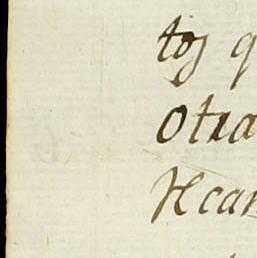 tos q
Otra
Hcar